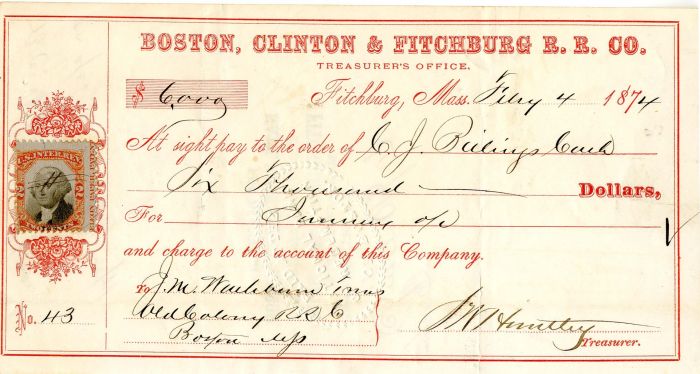 BOSTON, CLINTON & FITCHBURG R. R. CO.
TREASURER'S OFFICE.
$ 6,000 Fitchburg, Mass. Feby 4 1874
At sight pay to the order of C. J. Billings Cash
Six Thousand Dollars,
For January a/c
and charge to the account of this Company.
To J. M. Washburn Treas
Old Colony RR Co
Boston
No. 43
Treasurer.
U.S. INTER. REV.